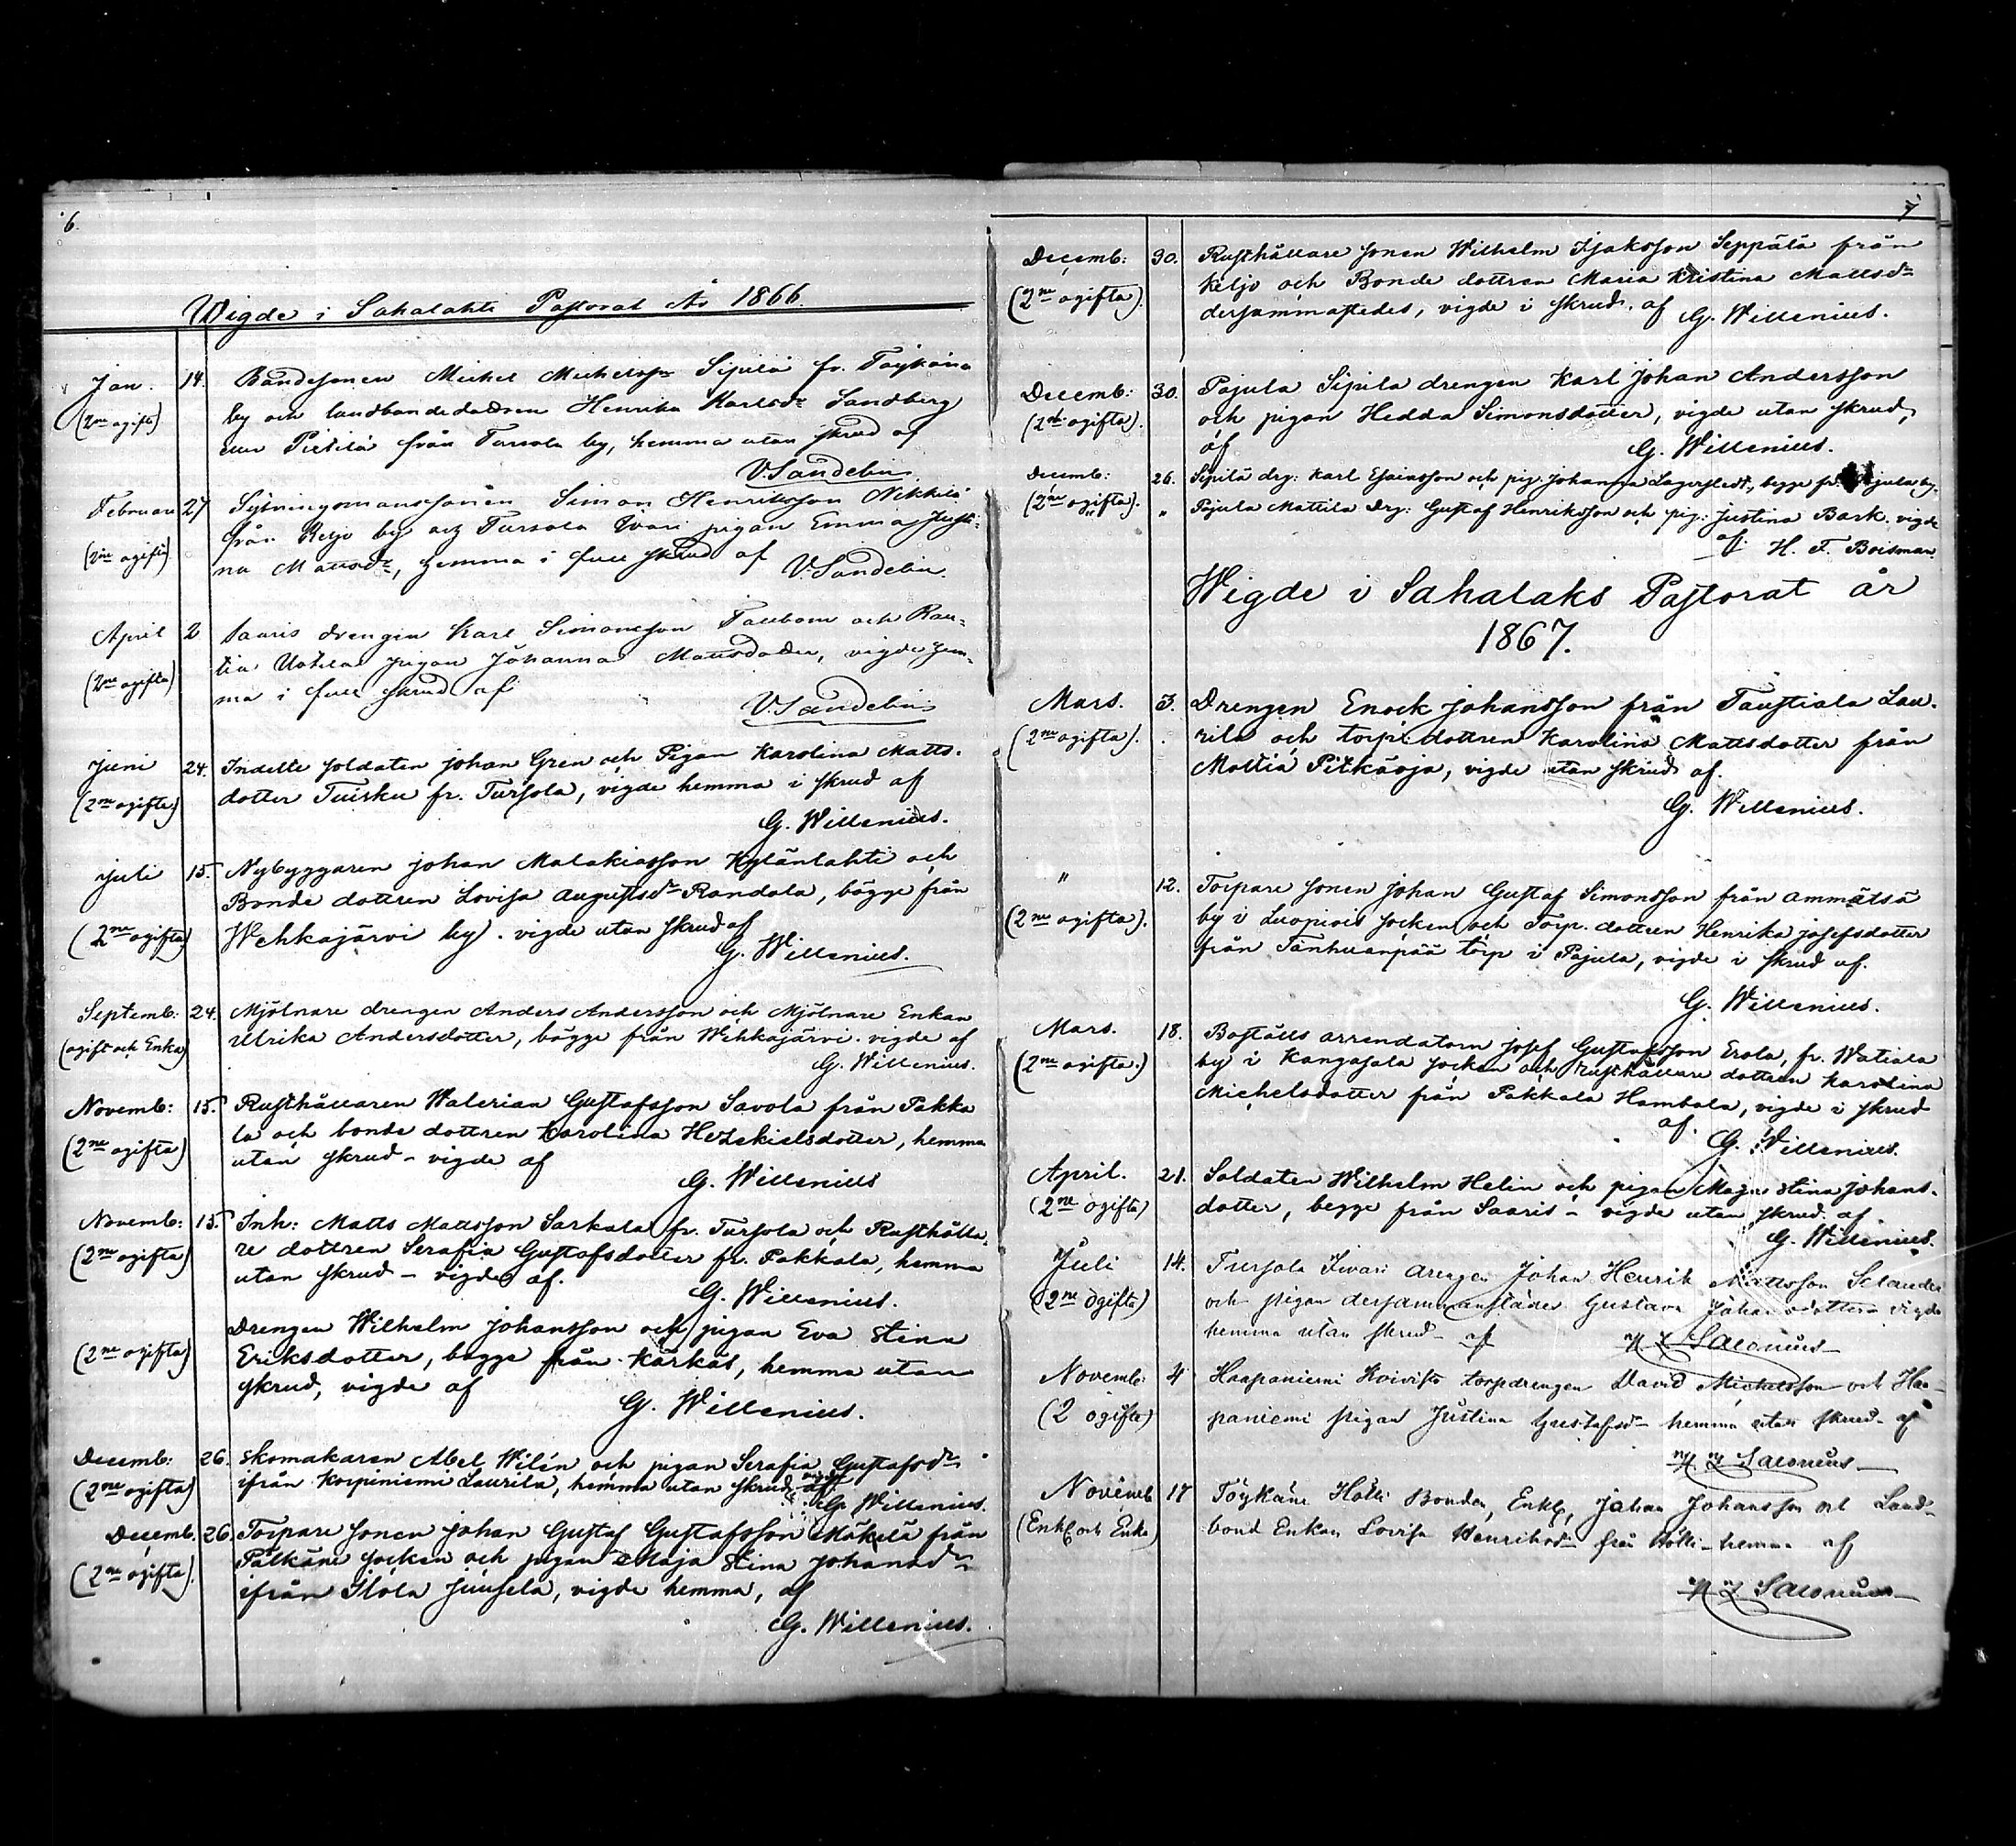 6.
Wigde i Sahalahti Pastorat År 1866.
Jan. 14. Bondesonen Michel Michelss: Sipilä fr. Töykänä
(2ne ogifta) by och landbondedottren Henrika Karlsdr Sandberg
eller Pietilä från Tursola by, hemma utan skrud af
V. Sandelin
Februari 27 Sytningsmanssonen Simon Henriksson Nikkilä
från Keljo by och Tursola Iivari pigan Emma Justi-
(2ne ogifta) na Mattsdr, hemma i full skrud af V. Sandelin.
April 2 Saaris drengen Karl Simonsson Tallbom och Rau-
(2ne ogifta) tia Uotila pigan Johanna Mattsdotter, vigde hem-
ma i full skrud af
V. Sandelin
Juni 24. Indelte soldaten Johan Gren och Pigan Karolina Matts-
(2ne ogifta) dotter Tuisku fr. Tursola, vigde hemma i skrud af
G. Willenius.
Juli 15. Nybyggaren Johan Malakiasson Kylänlahti och
Bonde dottren Lovisa Augustsdr Randala, bägge från
(2ne ogifta) Wehkajärvi by. vigde utan skrud af
G. Willenius.
Septemb: 24. Mjölnare drengen Anders Andersson och Mjölnare Enkan
(ogift och Enka) Ulrika Andersdotter, bägge från Wehkajärvi. vigde af
G. Willenius.
Novemb: 15. Rusthållaren Walerian Gustafsson Savola från Pakka
(2ne ogifta) la och bonde dottren Karolina Hezekielsdotter, hemma
utan skrud - vigde af
G. Willenius
Novemb: 15. Inh: Matts Mattsson Sarkala fr. Tursola och Rusthålla-
(2ne ogifta) re dottren Serafia Gustafsdotter fr. Pakkala, hemma
utan skrud - vigde af.
G. Willenius.
Drengen Wilhelm Johansson och pigan Eva Stina
(2ne ogifta) Eriksdotter, bägge från Kärkäs, hemma utan
skrud, vigde af
G. Willenius.
Decemb: 26. Skomakaren Abel Wilén och pigan Serafia Gustafsdr
(2ne ogifta) ifrån Korpiniemi Laurila, hemma utan skrud vigde af
G. Willenius.
Decemb. 26. Torpare sonen Johan Gustaf Gustafsson Mäkelä från
(2ne ogifta). Pälkäne socken och pigan Maja Stina Johansdr
ifrån Ilola Juusela, vigde hemma, af
G. Willenius.
7
Decemb: 30. Rusthållare sonen Wilhelm Isaksson Seppälä från
(2ne ogifta). Keljo och Bonde dottren Maria Kristina Mattsdr
dersammastedes, vigde i skrud. af G. Willenius.
Decemb: 30. Pajula Sipila drengen Karl Johan Andersson
(2ne ogifta). och pigan Hedda Simonsdotter, vigde utan skrud,
af G. Willenius.
Decemb: 26. Sipilä drg: Karl Esaiasson och pig: Johanna Lagerstedt, begge fr. Pajula by.
(2ne ogifta). " Pajula Mattila Drg: Gustaf Henriksson och pig: Justina Bark. vigde
af. H. F. Boisman.
Wigde i Sahalaks Pastorat år
1867.
Mars. 3. Drengen Enock Johansson från Taustiala Lau-
(2ne ogifta). rila och torp. dottren Karolina Mattsdotter från
Mattia Pitkäoja, vigde utan skrud af.
G. Willenius.
" 12. Torpare sonen Johan Gustaf Simonsson från Ammätsä
(2ne ogifta). by i Luopiois socken och Torp. dottren Henrika Josefsdotter
från Tanhuanpää torp i Pajula, vigde i skrud af.
G. Willenius.
Mars. 18. Boställs arrendatorn Josef Gustafsson Erola, fr. Watiala
(2ne ogifta.) by i Kangasala socken och rusthållare dottren Karolina
Michelsdotter från Pakkala Hambala, vigde i skrud
af. G. Willenius.
April. 21. Soldaten Wilhelm Helin och pigan Maja Stina Johans-
(2ne ogifta) dotter, begge från Saaris - vigde utan skrud. af
G. Willenius.
Juli 14. Tursola Iivari drengen Johan Henrik Mattsson Selander
(2ne ogifta) och pigan dersammanstädes Gustava Johansdotter vigde
hemma utan skrud af Salonius
Novemb: 4 Haapaniemi Koivisto torpdrengen David Michelsson och Haa-
(2 ogifta) paniemi pigan Justina Gustafsdr hemma utan skrud af
Salonius
Novemb 17 Töykänä Hölli Bonden, Enkl, Johan Johansson och Land-
(Enkl och Enka) bond Enkan Lovisa Henriksdr från Hölli hemma af
Salonius